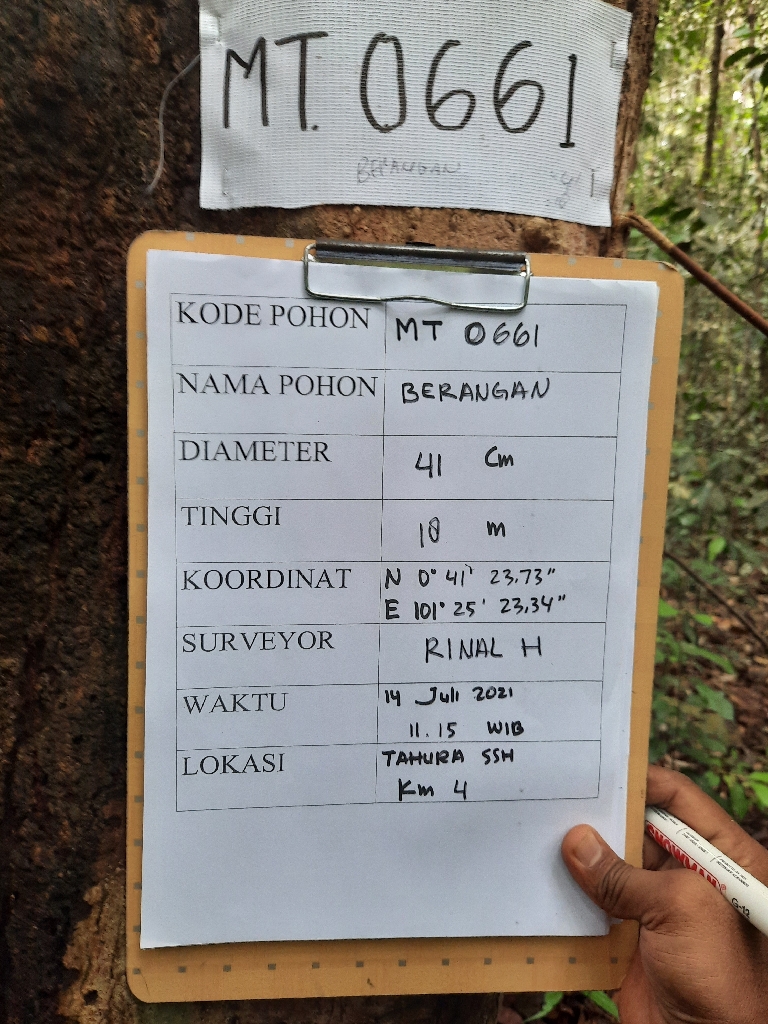 MT. 0661
BERANGAN
KODE POHON MT 0661
NAMA POHON BERANGAN
DIAMETER 41 Cm
TINGGI 18 m
KOORDINAT N 0° 41' 23,73"
E 101° 25' 23,34"
SURVEYOR RINAL H
WAKTU 14 Juli 2021
11.15 WIB
LOKASI TAHURA SSH
Km 4
SNOWMAN
G-12